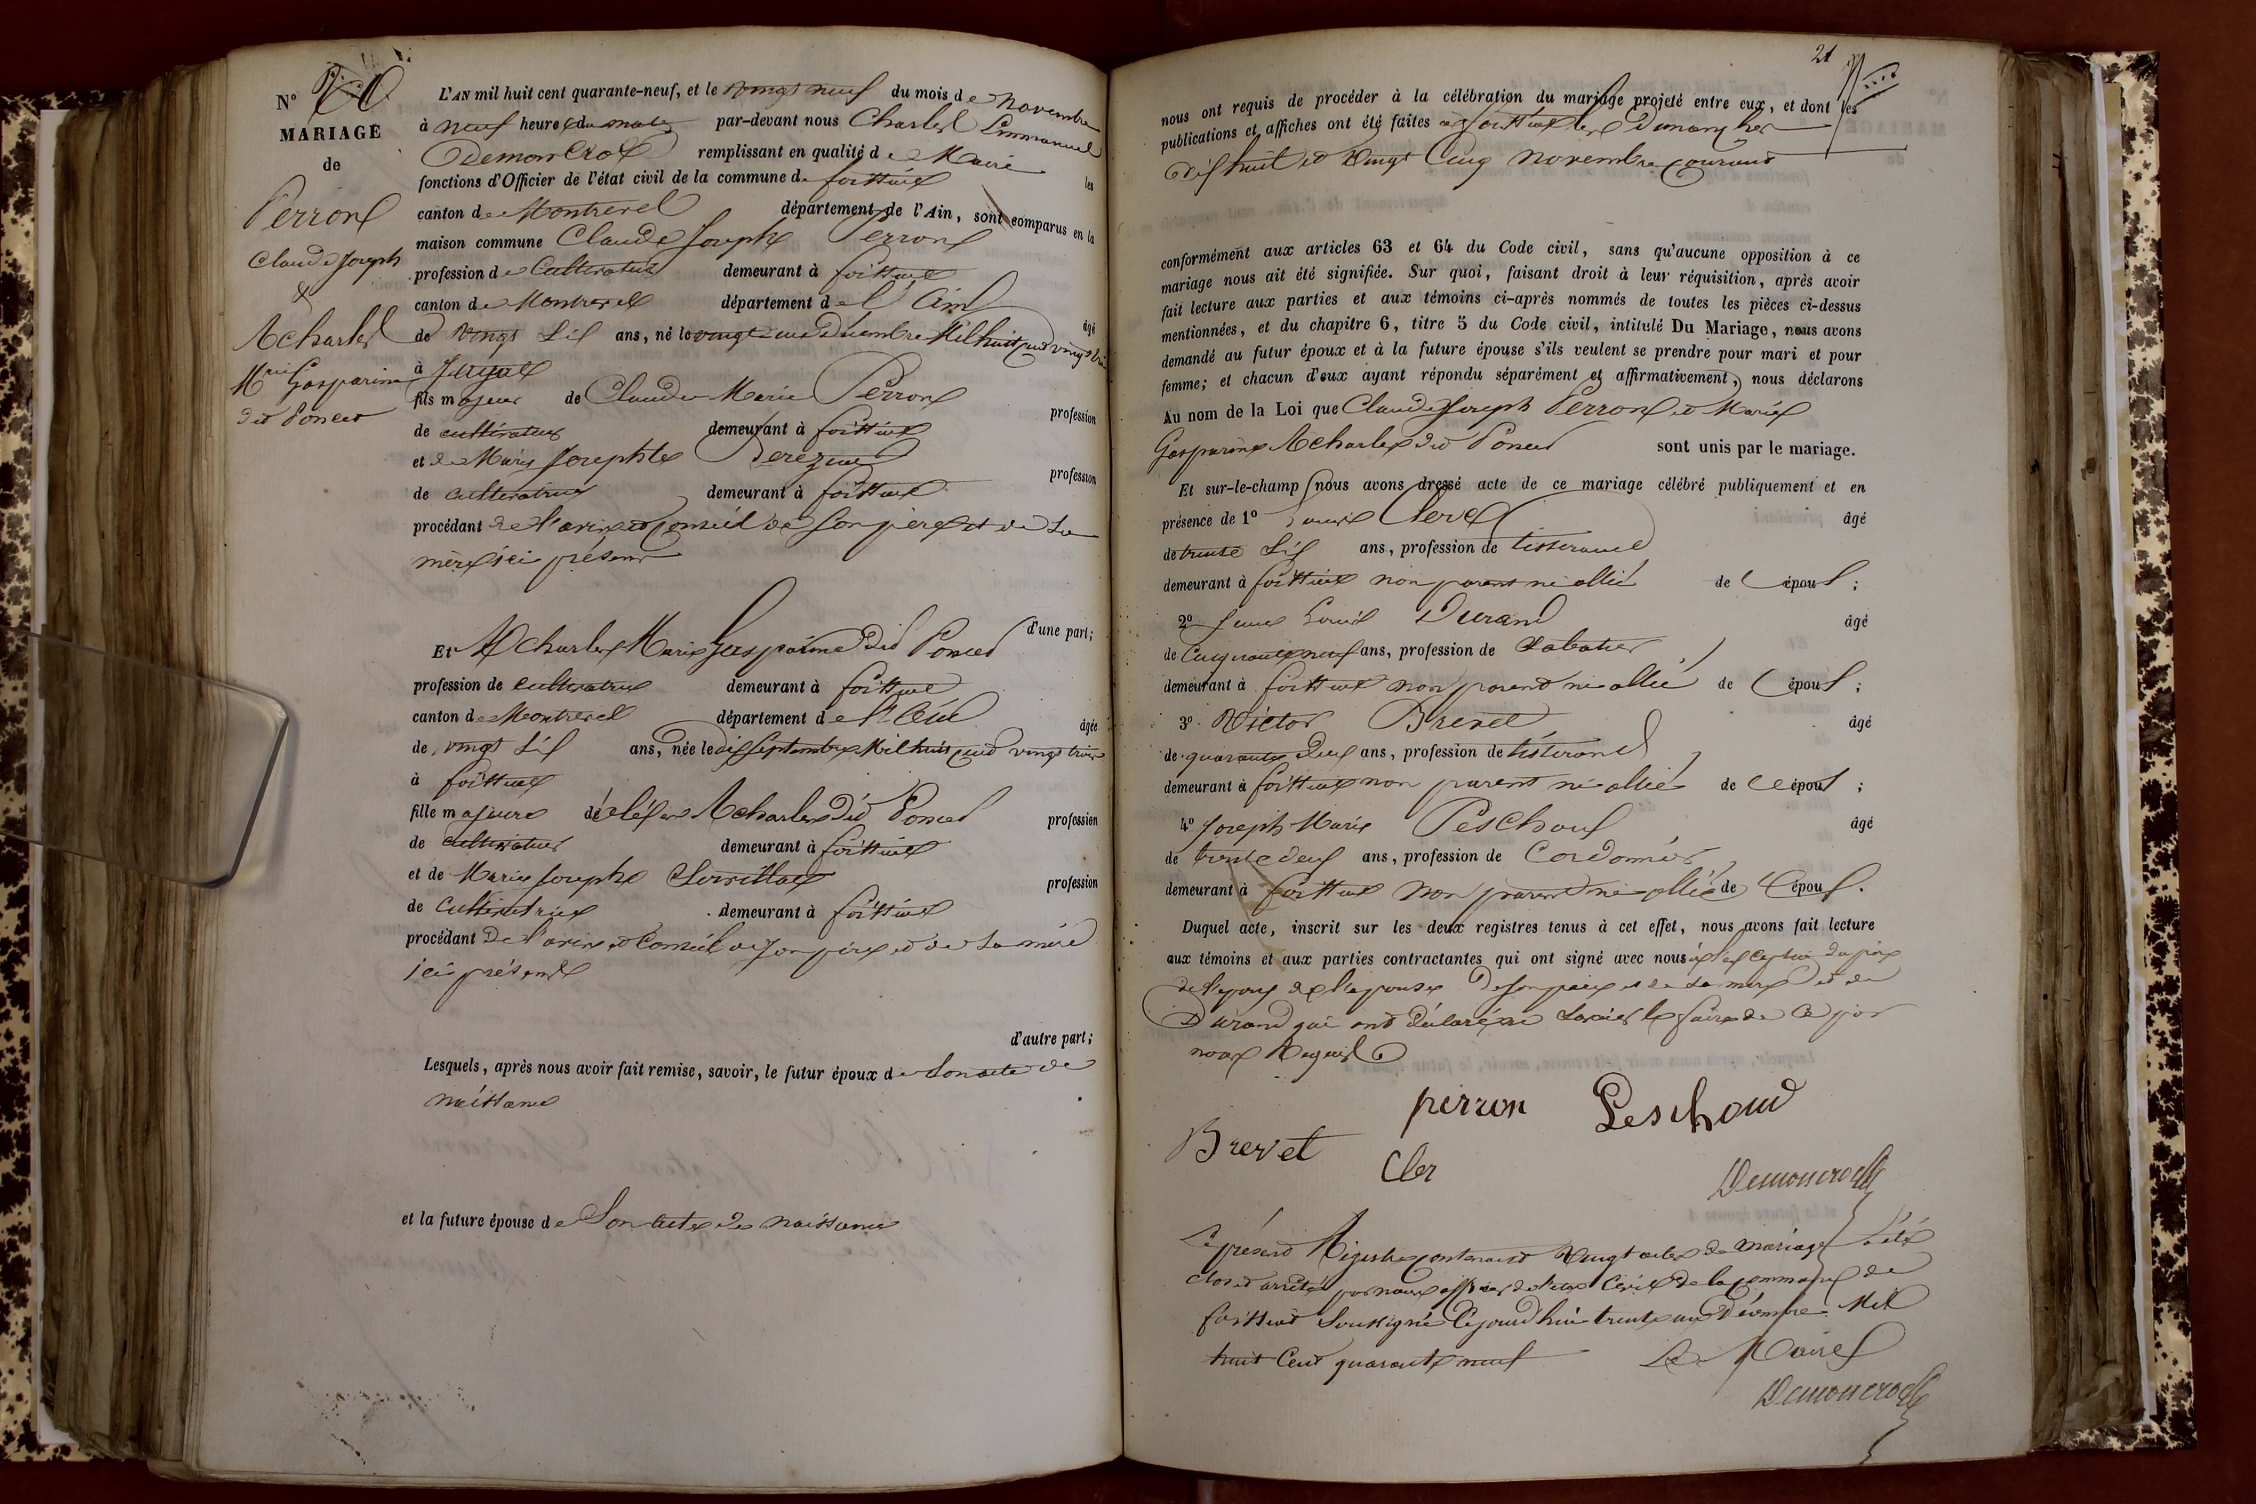 N° 20
MARIAGE
de
Perron
Claude Joseph
&
Acharles
Mrie Gasparine
dit Poncet
L'AN mil huit cent quarante-neuf, et le vingt neuf du mois de novembre
à neuf heures du matin par-devant nous Charles Emmanuel
Demoncroz remplissant en qualité de Maire les
fonctions d'Officier de l'état civil de la commune de foissiat
canton de Montrevel département de l'Ain, sont comparus en la
maison commune Claude Joseph Perron
profession de Cultivateur demeurant à foissiat
canton de Montrevel département de l'Ain âgé
de vingt six ans, né le vingt Décembre Mil huit cent vingt
à
fils majeur de Claude Marie Perron profession
de cultivateur demeurant à foissiat
et de Marie Josephte profession
de cultivatrice demeurant à foissiat
procédant de l'avis et Conseil de son père et de sa
mère ici présent
d'une part;
Et Acharles Marie Gasparine dit Poncet
profession de cultivatrice demeurant à foissiat
canton de Montrevel département de l'Ain âgée
de vingt six ans, née le dix Septembre Mil huit cent vingt trois
à foissiat
fille majeure de Acharles dit Poncet profession
de cultivateur demeurant à foissiat
et de Marie Josephe profession
de Cultivatrice demeurant à foissiat
procédant De l'avis et Conseil de son père et de sa mère
ici présent
d'autre part;
Lesquels, après nous avoir fait remise, savoir, le futur époux de son acte de
naissance
et la future épouse de Son acte de naissance
21
nous ont requis de procéder à la célébration du mariage projeté entre eux, et dont les
publications et affiches ont été faites à foissiat les Dimanches
dix huit et vingt Cinq novembre courant
conformément aux articles 63 et 64 du Code civil, sans qu'aucune opposition à ce
mariage nous ait été signifiée. Sur quoi, faisant droit à leur réquisition, après avoir
fait lecture aux parties et aux témoins ci-après nommés de toutes les pièces ci-dessus
mentionnées, et du chapitre 6, titre 5 du Code civil, intitulé Du Mariage, nous avons
demandé au futur époux et à la future épouse s'ils veulent se prendre pour mari et pour
femme; et chacun d'eux ayant répondu séparément et affirmativement, nous déclarons
Au nom de la Loi que Claude Joseph Perron et Marie
Gasparine Acharles dit Poncet sont unis par le mariage.
Et sur-le-champ nous avons dressé acte de ce mariage célébré publiquement et en
présence de 1° Louis Clerc âgé
de trente six ans, profession de tisserand
demeurant à foissiat non parent ni allié de l'époux;
2° Louis Durand âgé
de Cinquante neuf ans, profession de Sabotier
demeurant à foissiat non parent ni allié de l'époux;
3° Victor Brevet âgé
de quarante deux ans, profession de tisserand
demeurant à foissiat non parent ni allié de l'époux;
4° Joseph Marie Peschoux âgé
de trente deux ans, profession de Cordonnier
demeurant à foissiat non parent ni allié de l'époux.
Duquel acte, inscrit sur les deux registres tenus à cet effet, nous avons fait lecture
aux témoins et aux parties contractantes qui ont signé avec nous à l'exception du père
de l'époux de l'épouse De son père et de sa mère et de
Durand qui ont déclaré ne savoir le faire de ce par
nous Requis
perron Peschoud
Brevet Cler
Demoncroz
Le présent Registre contenant vingt actes de mariage a été
clos et arrêté par nous officier de l'état Civil de la commune de
foissiat Soussigné Cejourd'hui trente un Décembre Mil
huit Cent quarante neuf Le Maire
Demoncroz